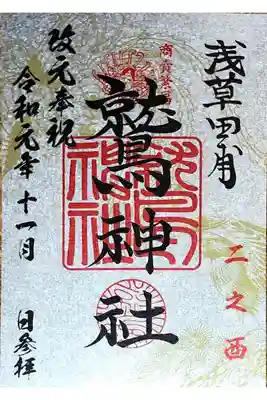 浅草田甫
二之酉
鷲神社
鷲神社
改元奉祝
令和元年十一月
日参拝